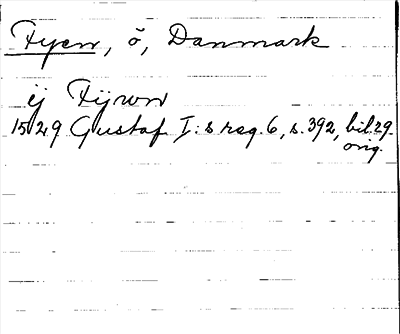 Fyen, ö, Danmark
ÿ Fÿwn
1529 Gustaf I:s reg. 6, s. 392, bil. 29.
orig.